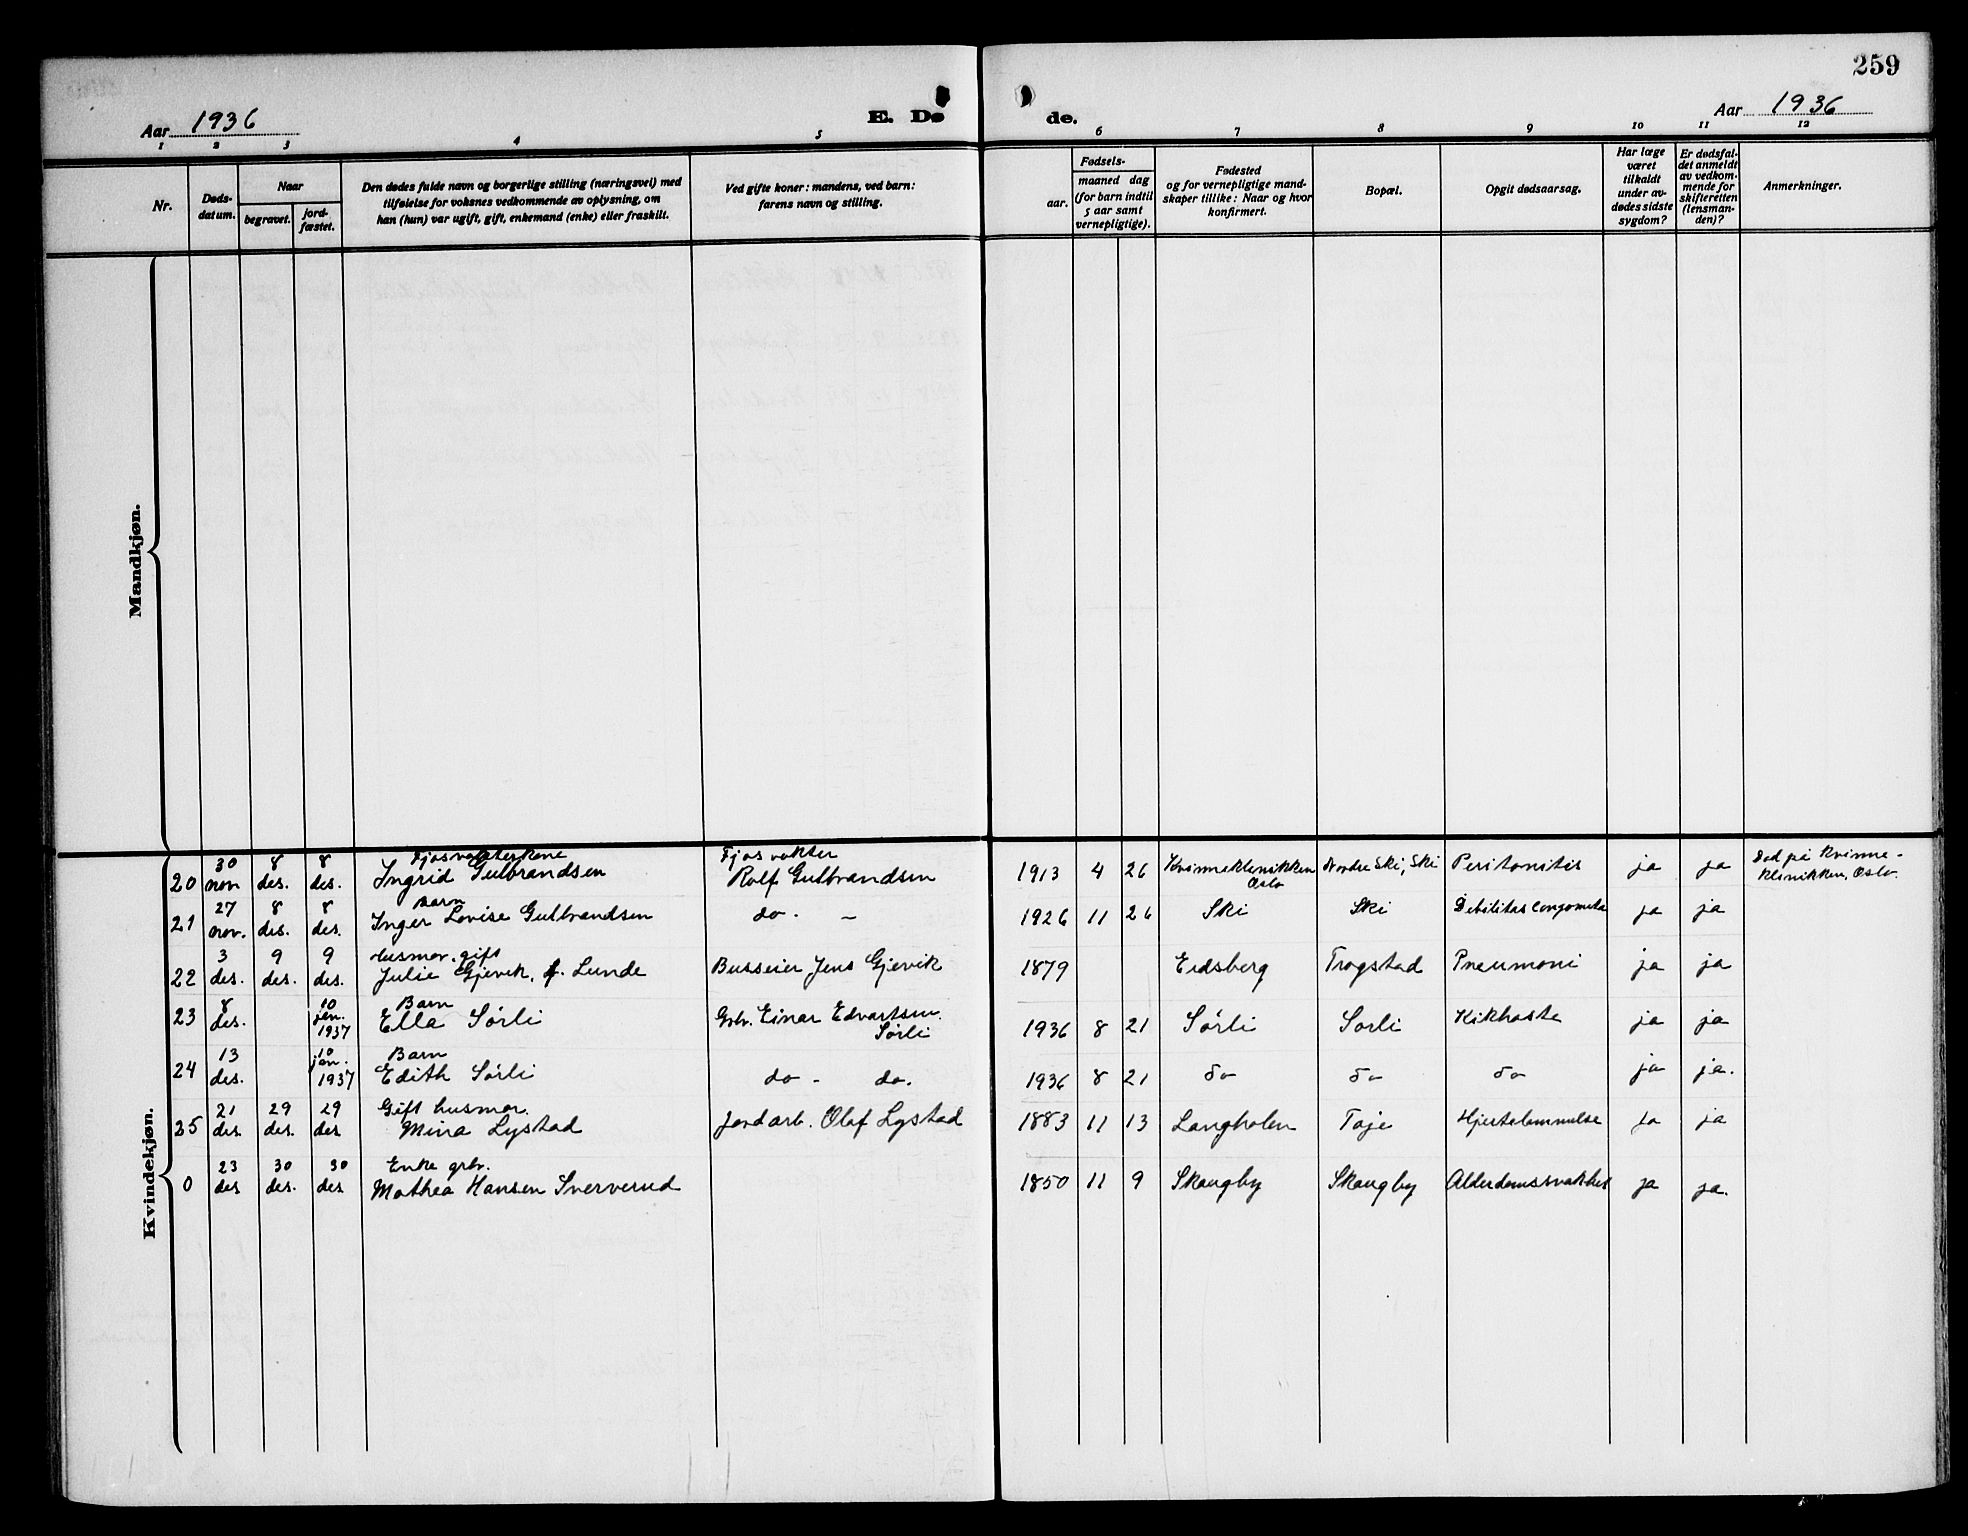 259
Aar 1936
E. Dø
de.
Aar 1936
1 2 3 4 5 6 7 8 9 10 11 12
Nr.
Døds-
datum.
Naar
begravet.
jord-
fæstet.
Den dødes fulde navn og borgerlige stilling (næringsvei) med
tilføielse for voksnes vedkommende av oplysning, om
han (hun) var ugift, gift, enkemand (enke) eller fraskilt.
Ved gifte koner: mandens, ved barn:
farens navn og stilling.
aar.
Fødsels-
maaned dag
(for barn indtil
5 aar samt
vernepligtige).
Fødested
og for vernepligtige mand-
skaper tillike: Naar og hvor
konfirmert.
Bopæl.
Opgit dødsaarsag.
Har læge
været
tilkaldt
under av-
dødes sidste
sygdom?
Er dødsfal-
det anmeldt
av vedkom-
mende for
skifteretten
(lensman-
den)?
Anmerkninger.
Mandkjøn.
Kvindekjøn.
30 8 8 Fjøsvokter
20 nov des. des. Ingrid Gulbrandsen Rolf Gulbrandsen 1913 4 26 Kvinneklinikken Nordre Ski, Ski Peritonitis ja ja Død på Kvinne-
Oslo klinikken, Oslo.
27 8 8 Barn
21 nov. des. des. Inger Lovise Gulbrandsen do. — 1926 11 26 Ski Ski Debilitas ja ja
3 9 9 Husmor. gift
22 des. des. des. Julie Gjevik, f. Lunde Busseier Jens Gjevik 1879 Eidsberg Trøgstad Pneumoni ja ja
8 10 Barn
23 des. jan. 1937 Ella Sørli Grbr. Einar Edvartsen Sørli 1936 8 21 Sørli Sørli Kikhoste ja ja
13 10 Barn
24 des. jan. 1937 Edith Sørli do - do. 1936 8 21 do do do ja ja.
21 29 29 Gift husmor.
25 des. des. des Mina Lystad Jordarb. Olaf Lystad 1883 11 13 Langholen Toje Hjertelammelse ja ja
23 30 30 Enke grbr.
0 des des. des Mathea Hansen Sververud 1850 11 9 Skaugby Skaugby Alderdomssvakhet ja ja.